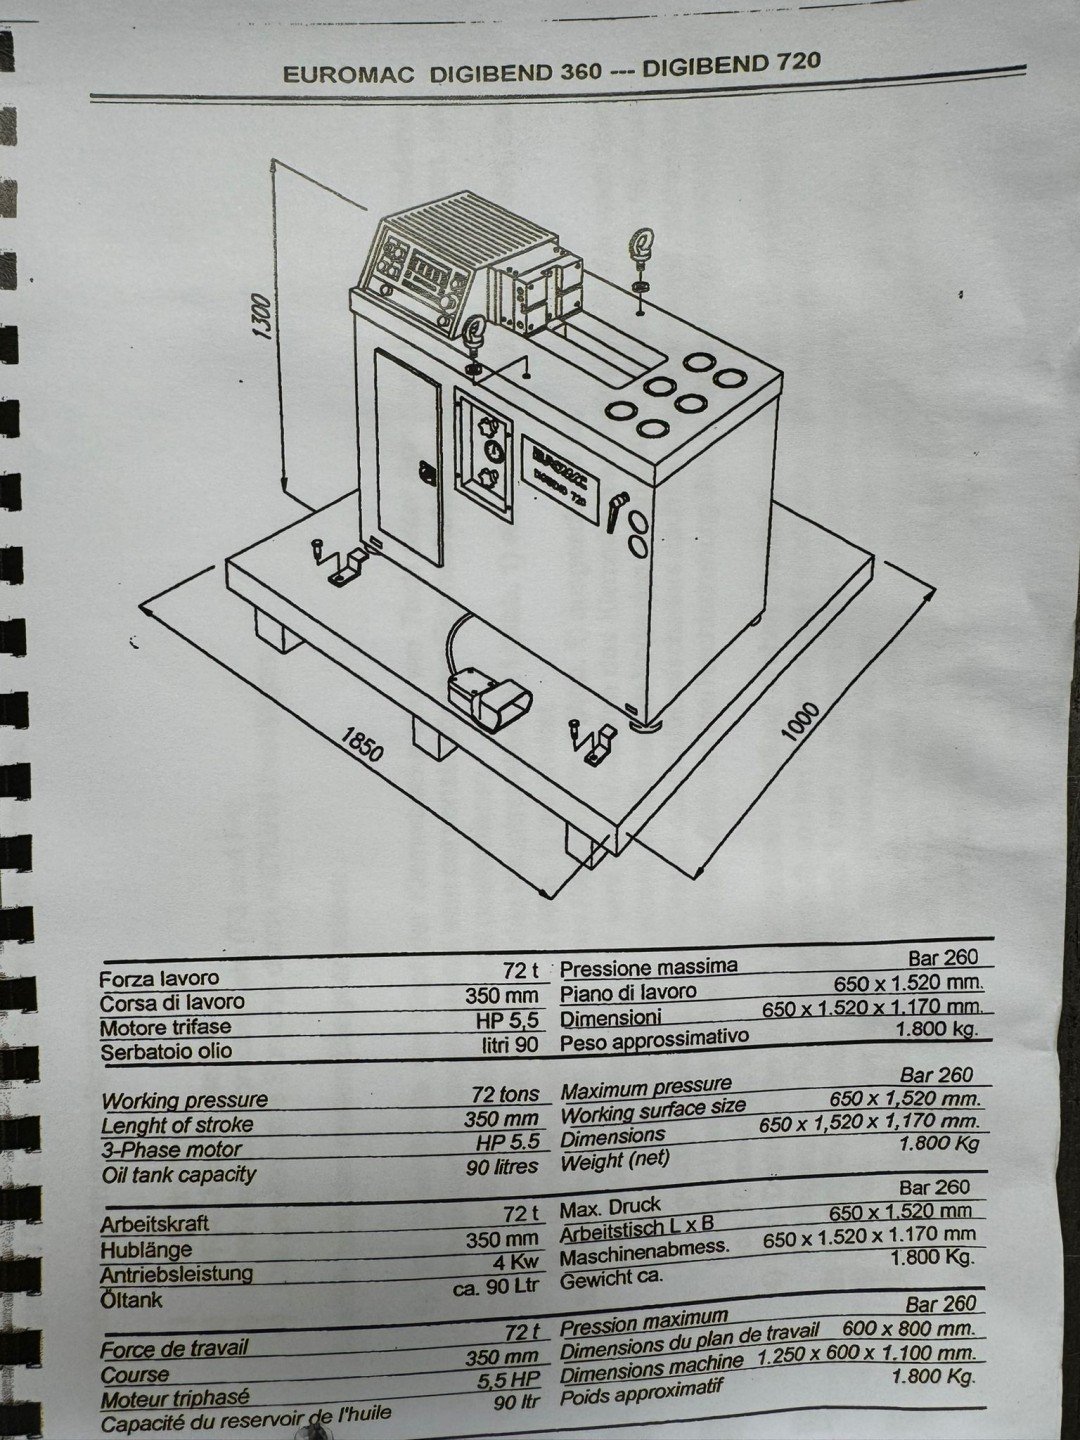 EUROMAC DIGIBEND 360 --- DIGIBEND 720
1300
EUROMAC
DIGIBEND 720
1850
1000
Forza lavoro 72 t Pressione massima Bar 260
Corsa di lavoro 350 mm Piano di lavoro 650 x 1.520 mm.
Motore trifase HP 5,5 Dimensioni 650 x 1.520 x 1.170 mm.
Serbatoio olio litri 90 Peso approssimativo 1.800 kg.
Working pressure 72 tons Maximum pressure Bar 260
Lenght of stroke 350 mm Working surface size 650 x 1,520 mm.
3-Phase motor HP 5.5 Dimensions 650 x 1,520 x 1,170 mm.
Oil tank capacity 90 litres Weight (net) 1.800 Kg
Arbeitskraft 72 t Max. Druck Bar 260
Hublänge 350 mm Arbeitstisch L x B 650 x 1.520 mm
Antriebsleistung 4 Kw Maschinenabmess. 650 x 1.520 x 1.170 mm
Öltank ca. 90 Ltr Gewicht ca. 1.800 Kg.
Force de travail 72 t Pression maximum Bar 260
Course 350 mm Dimensions du plan de travail 600 x 800 mm.
Moteur triphasé 5,5 HP Dimensions machine 1.250 x 600 x 1.100 mm.
Capacité du reservoir de l'huile 90 ltr Poids approximatif 1.800 Kg.